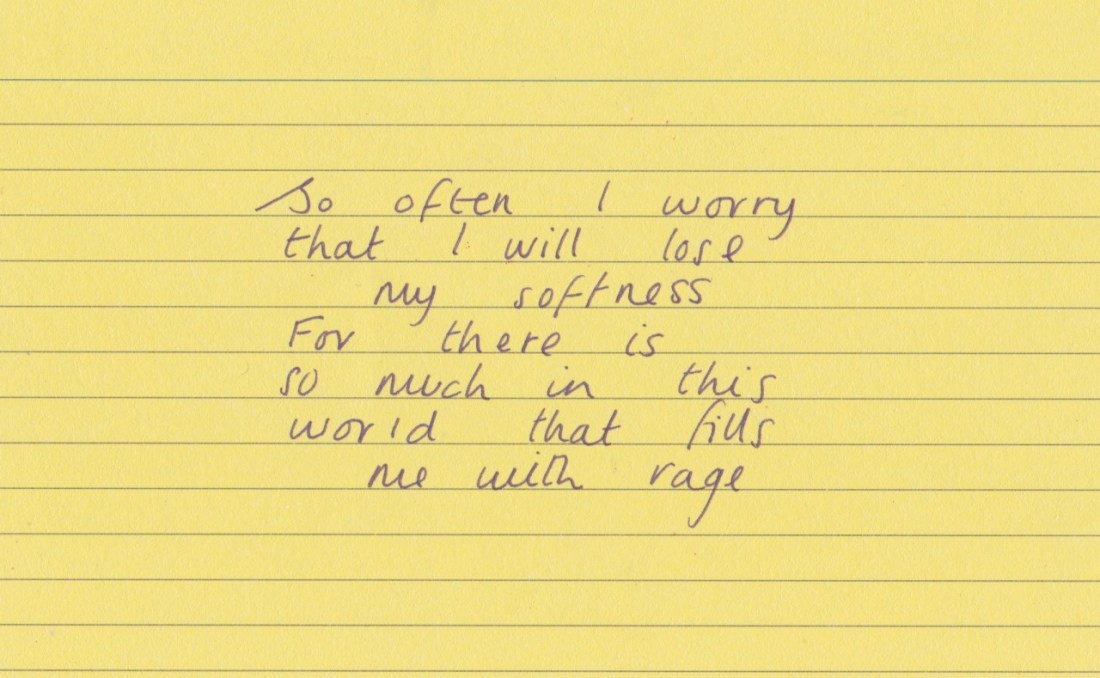 So often I worry
that I will lose
my softness
For there is
so much in this
world that fills
me with rage